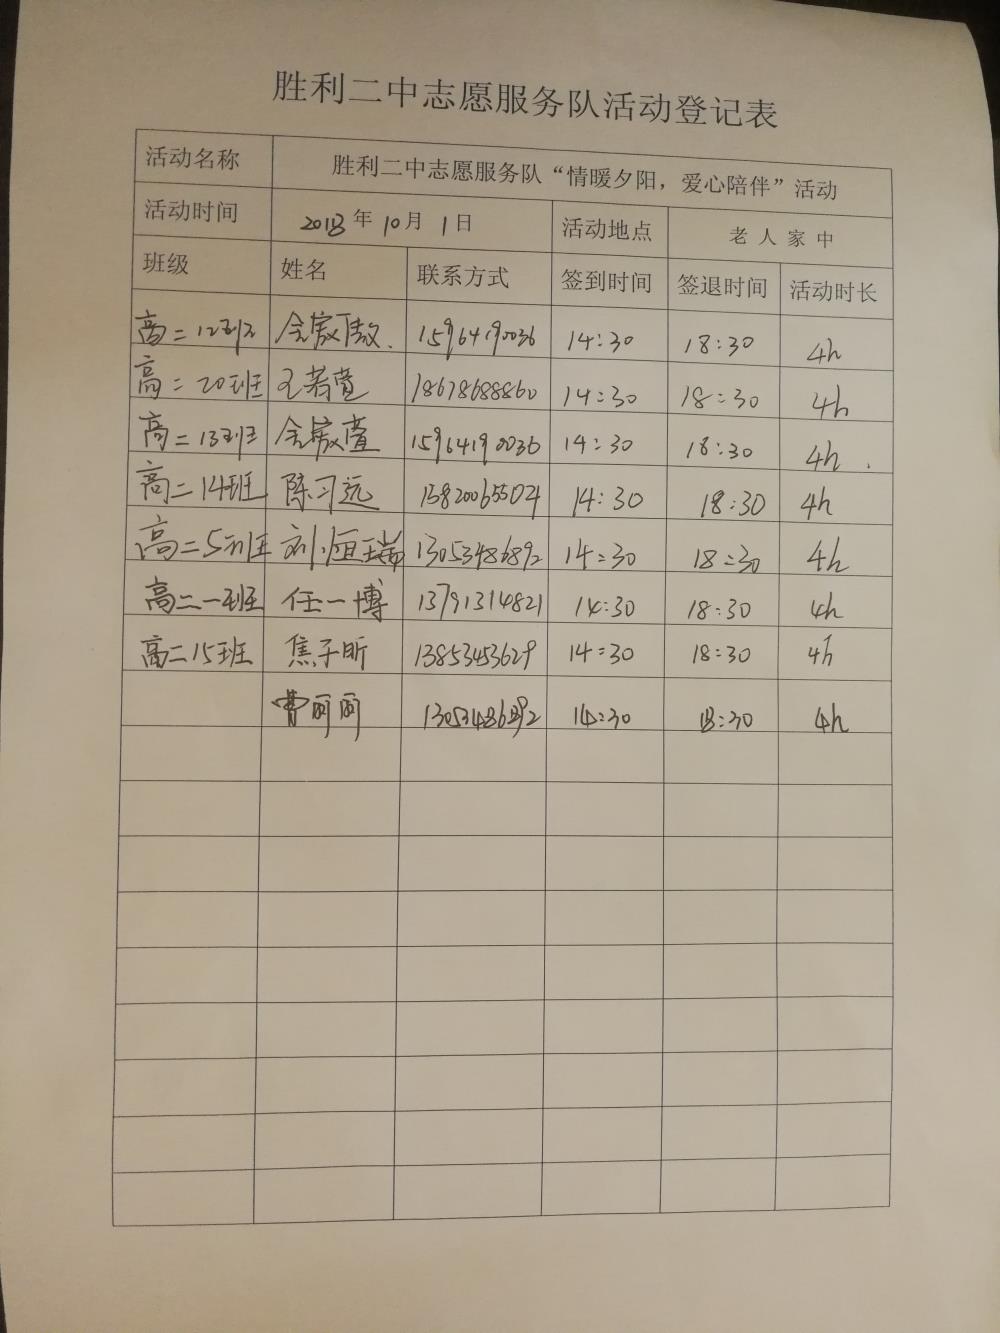 胜利二中志愿服务队活动登记表
活动名称 胜利二中志愿服务队“情暖夕阳，爱心陪伴”活动
活动时间 2018年10月1日 活动地点 老人家中
班级 姓名 联系方式 签到时间 签退时间 活动时长
高二12班 15964190036 14:30 18:30 4h
高二20班 王若萱 18678688860 14:30 18:30 4h
高二13班 15964190036 14:30 18:30 4h
高二14班 陈习远 14:30 18:30 4h
高二5班 刘恒瑞 13053486892 14:30 18:30 4h
高二一班 任一博 13791314821 14:30 18:30 4h
高二15班 焦子昕 13853453629 14:30 18:30 4h
曹丽丽 14:30 18:30 4h